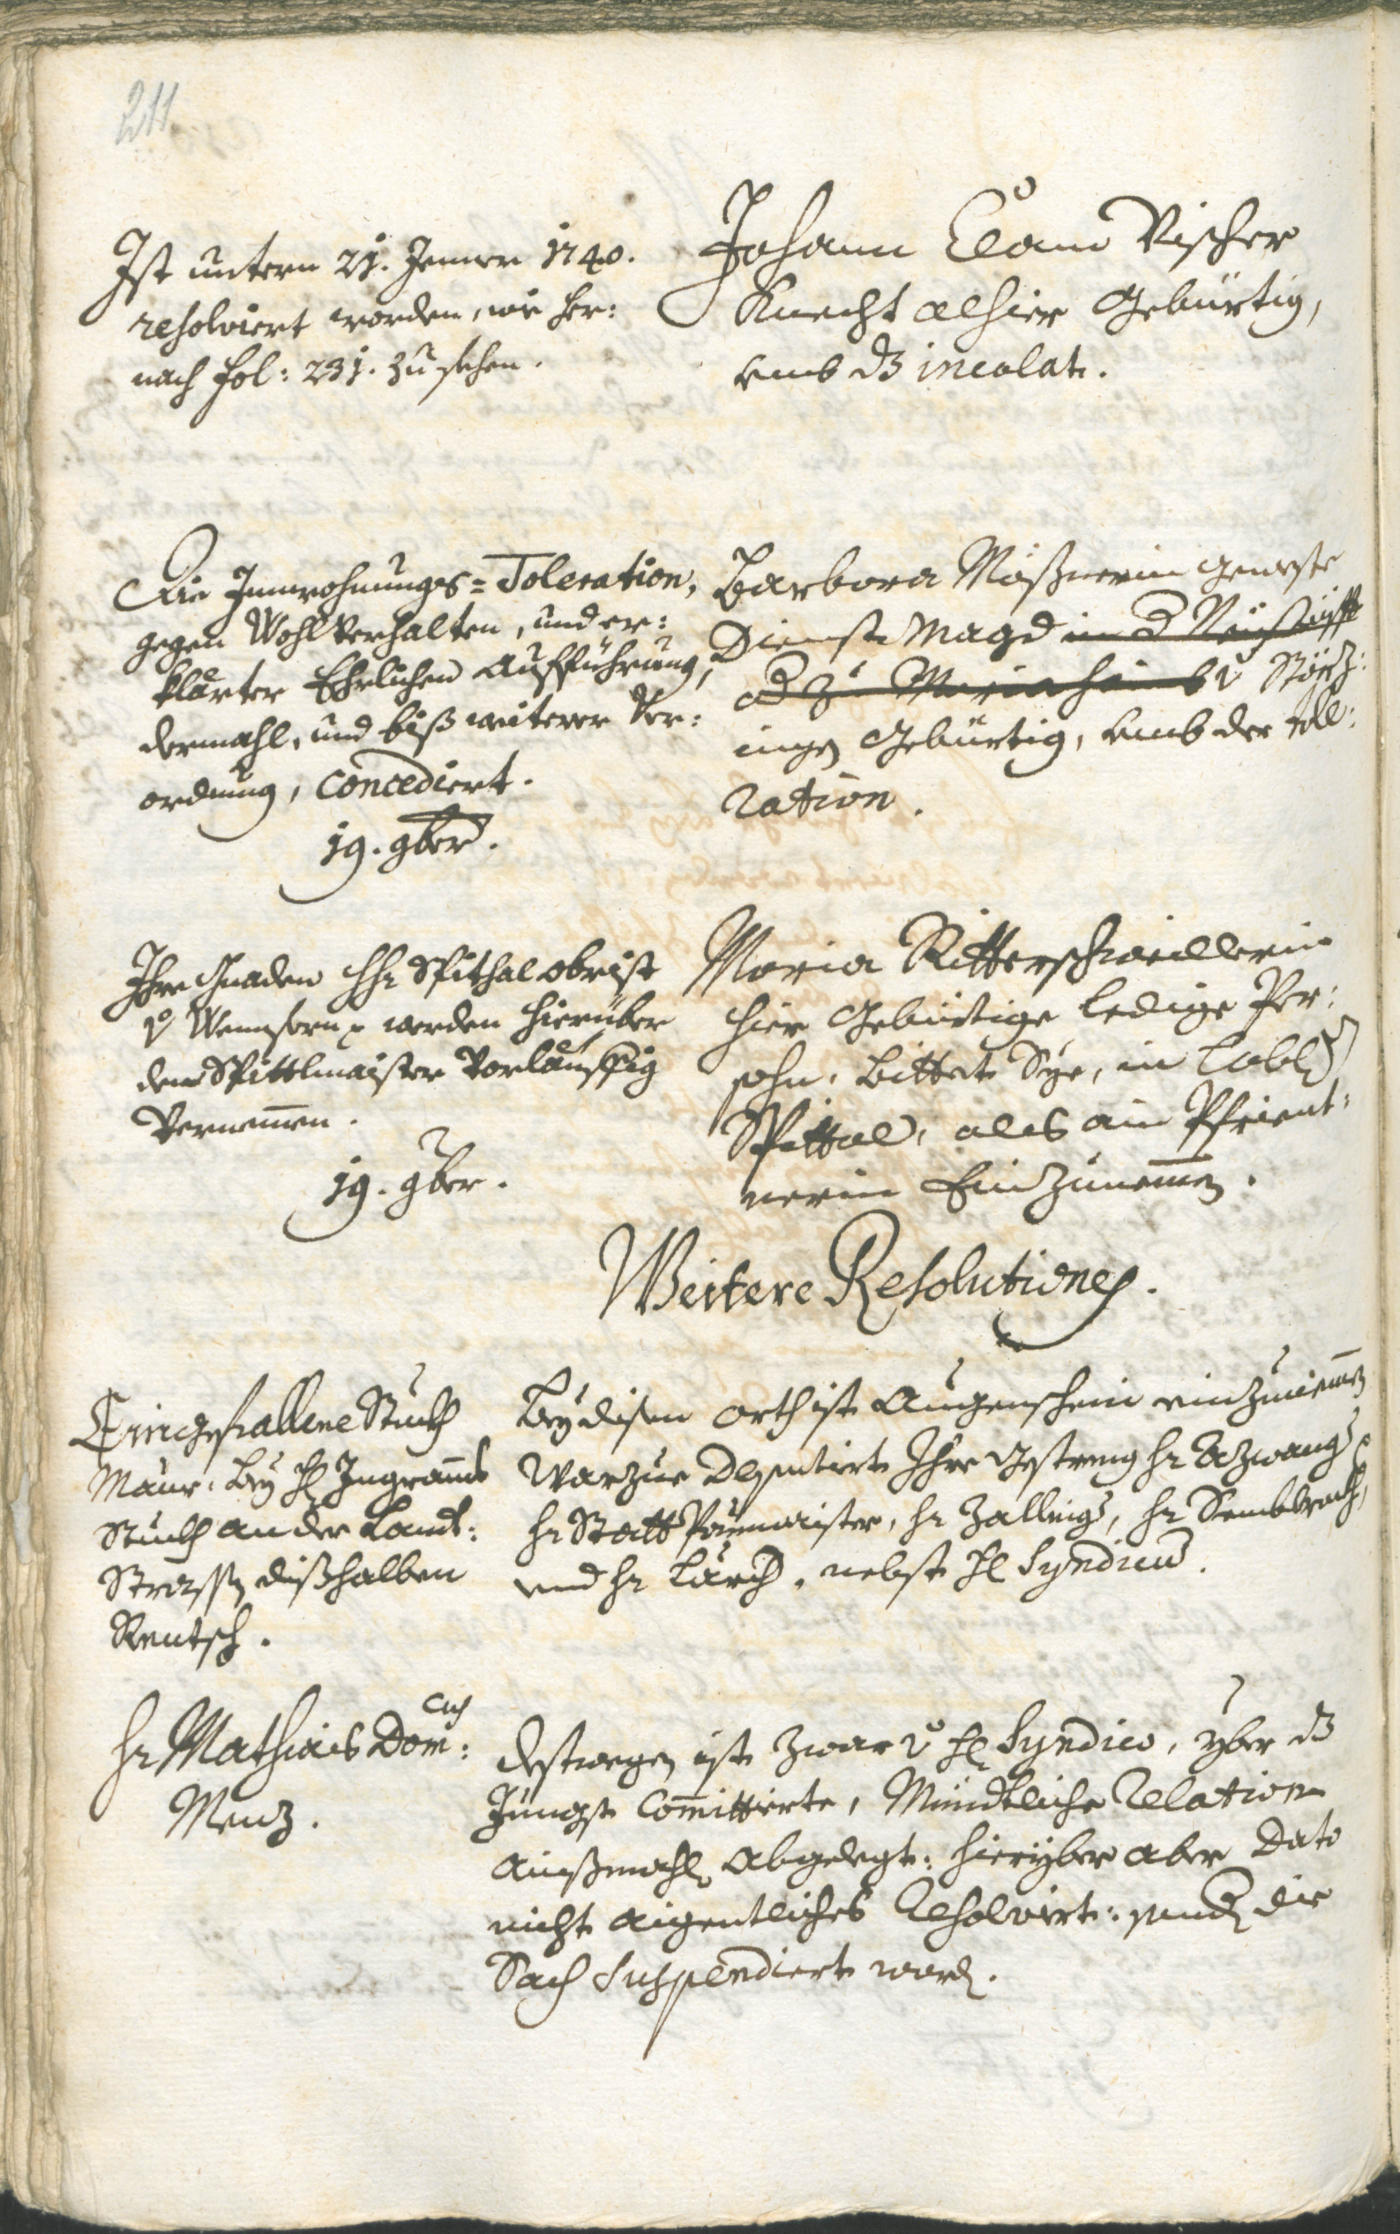 211
Ist untern 21. Jenner 1740.
resolviert worden, wie her:
nach fol: 231. zu sehen.
Johann Vischer
Knecht alhier Gebürtig,
umb dz incolat.
Die Innwohnungs=Toleration,
gegen Wohlverhalten, und er:
klärter Ehrlichen Aufführung,
dermahl, und biß weiterer Ver:
ordnung, concediert.
19. 9ber.
Barbara Mößnerin geweste
Dienst Magd in d
v
ingen Gebürtig, umb der tolle:
ration.
Ihro Gnaden Hhr Spithal obrist
v werden hierüber
den Spittlmaister Vorläuffig
Vernemmen.
19. 9ber.
Maria Ritterschweillerin
hier Gebürtige ledige Per:
sohn, bittet Sye, in Lobl
Spittal, als ain Pfrient:
nerin Einzunemmen.
Weitere Resolutiones.
Eingefallene Stuckh
Maur, bey Hl Ingramb
Stuckh an der Landt:
Strassen dißhalben
Rentsch.
Bey disem orth ist Augenschein einzunemmen
Warzue Deputiert Ihro Gestreng hr Azwang
hr Statt Paumaister, hr Zallinger, hr
und hr Lärch, nebst Hl Syndicus.
hr Mathias Dom:
cus
Menz.
destwegen ist zwar v Hl Syndico, yber dz
Jüngst Committierte, Mündtliche Relation
Abgelegt: hieryber aber Dato
nicht aigentliches Resolviert: sond die
Sach Suspendiert word.